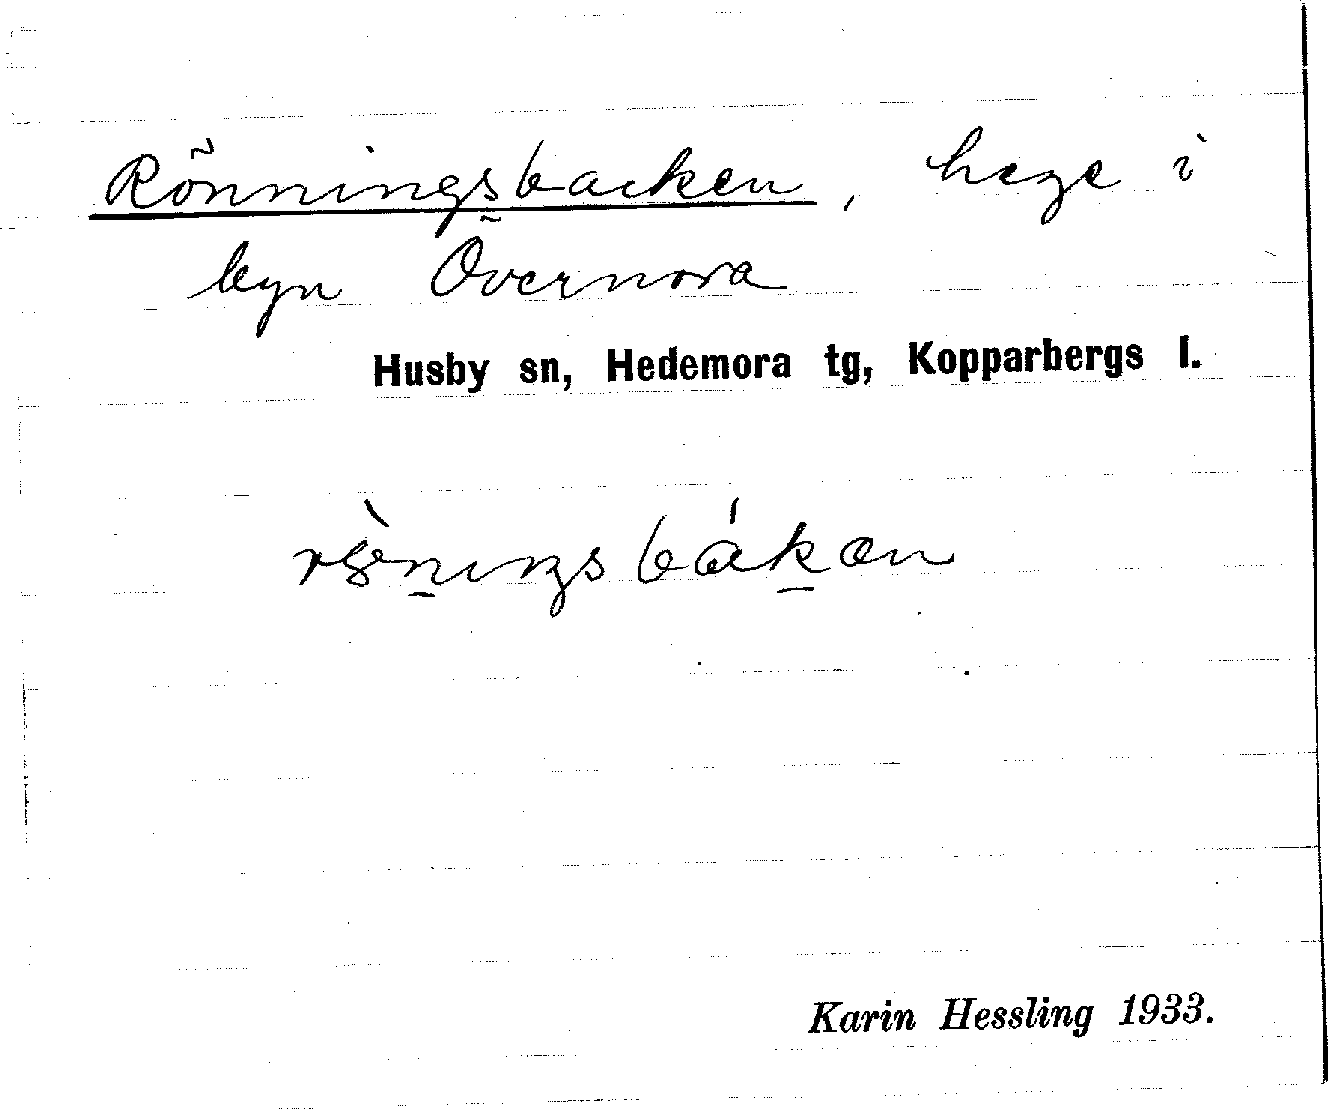 Rönningsbacken, hage i
byn Övernora
Husby sn, Hedemora tg, Kopparbergs l.
Karin Hessling 1933.